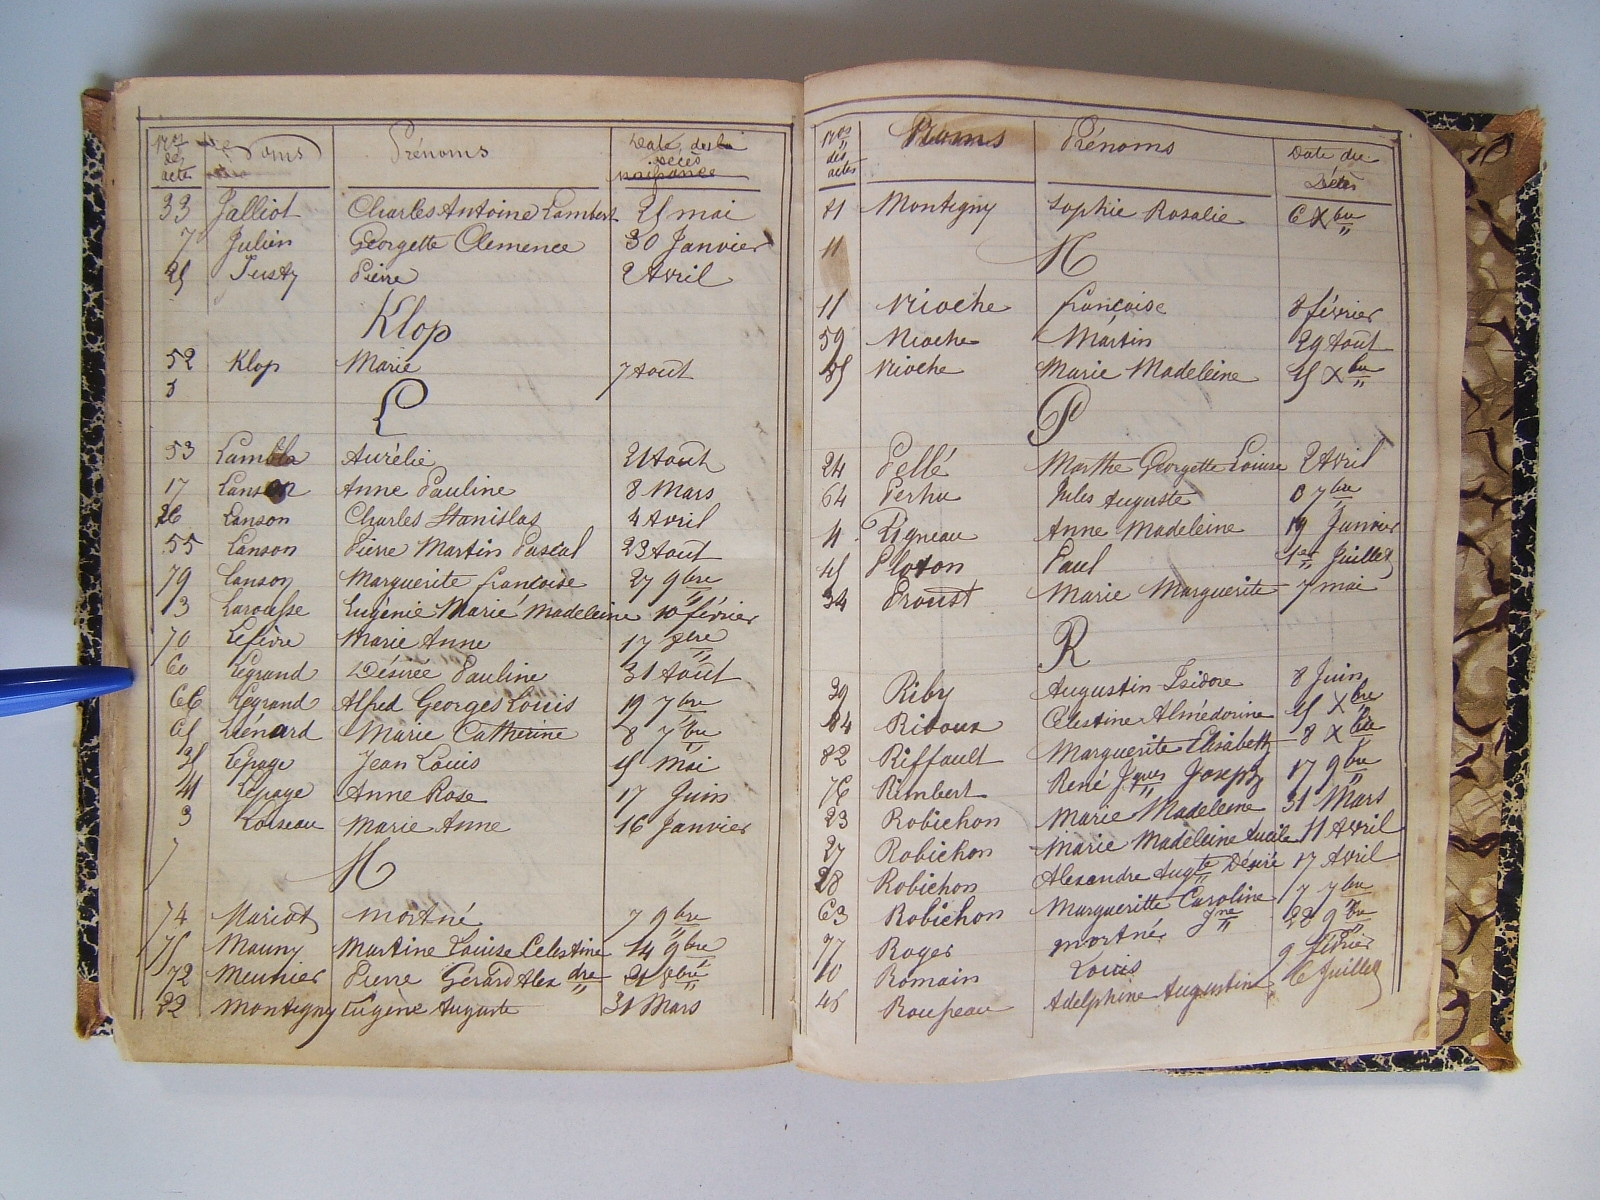 Nos des actes Noms Prénoms Date du décès naissance
33 Jalliot Charles Antoine Lambert 25 mai
7 Julien Georgette Clemence 30 Janvier
25 Justy Pierre 2 Avril
Klop
52 Klop Marie 7 Aout
L
53 Lambla Aurélie 21 Août
17 Lanson Anne Pauline 8 Mars
26 Lanson Charles Stanislas 4 Avril
55 Lanson Pierre Martin Pascal 23 Aout
79 Lanson Marguerite françoise 27 9bre
13 Larousse Eugénie Marie Madeleine 10 février
70 Lefèvre Marie Anne 17 8bre
60 Legrand Désirée Pauline 31 Août
66 Legrand Alfred Georges Louis 19 7bre
65 Liénard Marie Catherine 8 7bre
35 Lepage Jean Louis 15 Mai
41 Lepage Anne Rose 17 Juin
3 Loiseau Marie Anne 16 Janvier
7 M
74 Mariot mort né 7 9bre
75 Mauny Martine Louise Celestine 14 9bre
72 Meunier Pierre Gérard Alexandre 21 8bre
22 Montigny Eugène Auguste 31 Mars
Nos des actes Noms Prénoms Date du Décès
81 Montigny Sophie Rosalie 6 Xbre
11 N
11 Nioche françoise 8 février
59 Nioche Martin 29 Août
85 Nioche Marie Madeleine 15 Xbre
P
24 Pellé Marthe Georgette Louise 2 Avril
64 Perhu Jules Auguste 8 7bre
4 Pigneau Anne Madeleine 19 Janvier
45 Ploton Paul 1er Juillet
34 Proust Marie Marguerite 7 mai
R
39 Riby Augustin Isidore 8 Juin
84 Ridoux Célestine Almédorine 15 Xbre
82 Riffault Marguerite Elisabeth 8 Xbre
76 Rimbert René Jques Joseph 17 9bre
23 Robichon Marie Madeleine 31 Mars
27 Robichon Marie Madeleine Lucile 11 Avril
28 Robichon Alexandre Augte Désiré 17 Avril
63 Robichon Margueritte Caroline 7 7bre
77 Roger mort né 22 9bre
10 Romain Louis 9 février
46 Roupeau Adelphine Augustine 6 Juillet